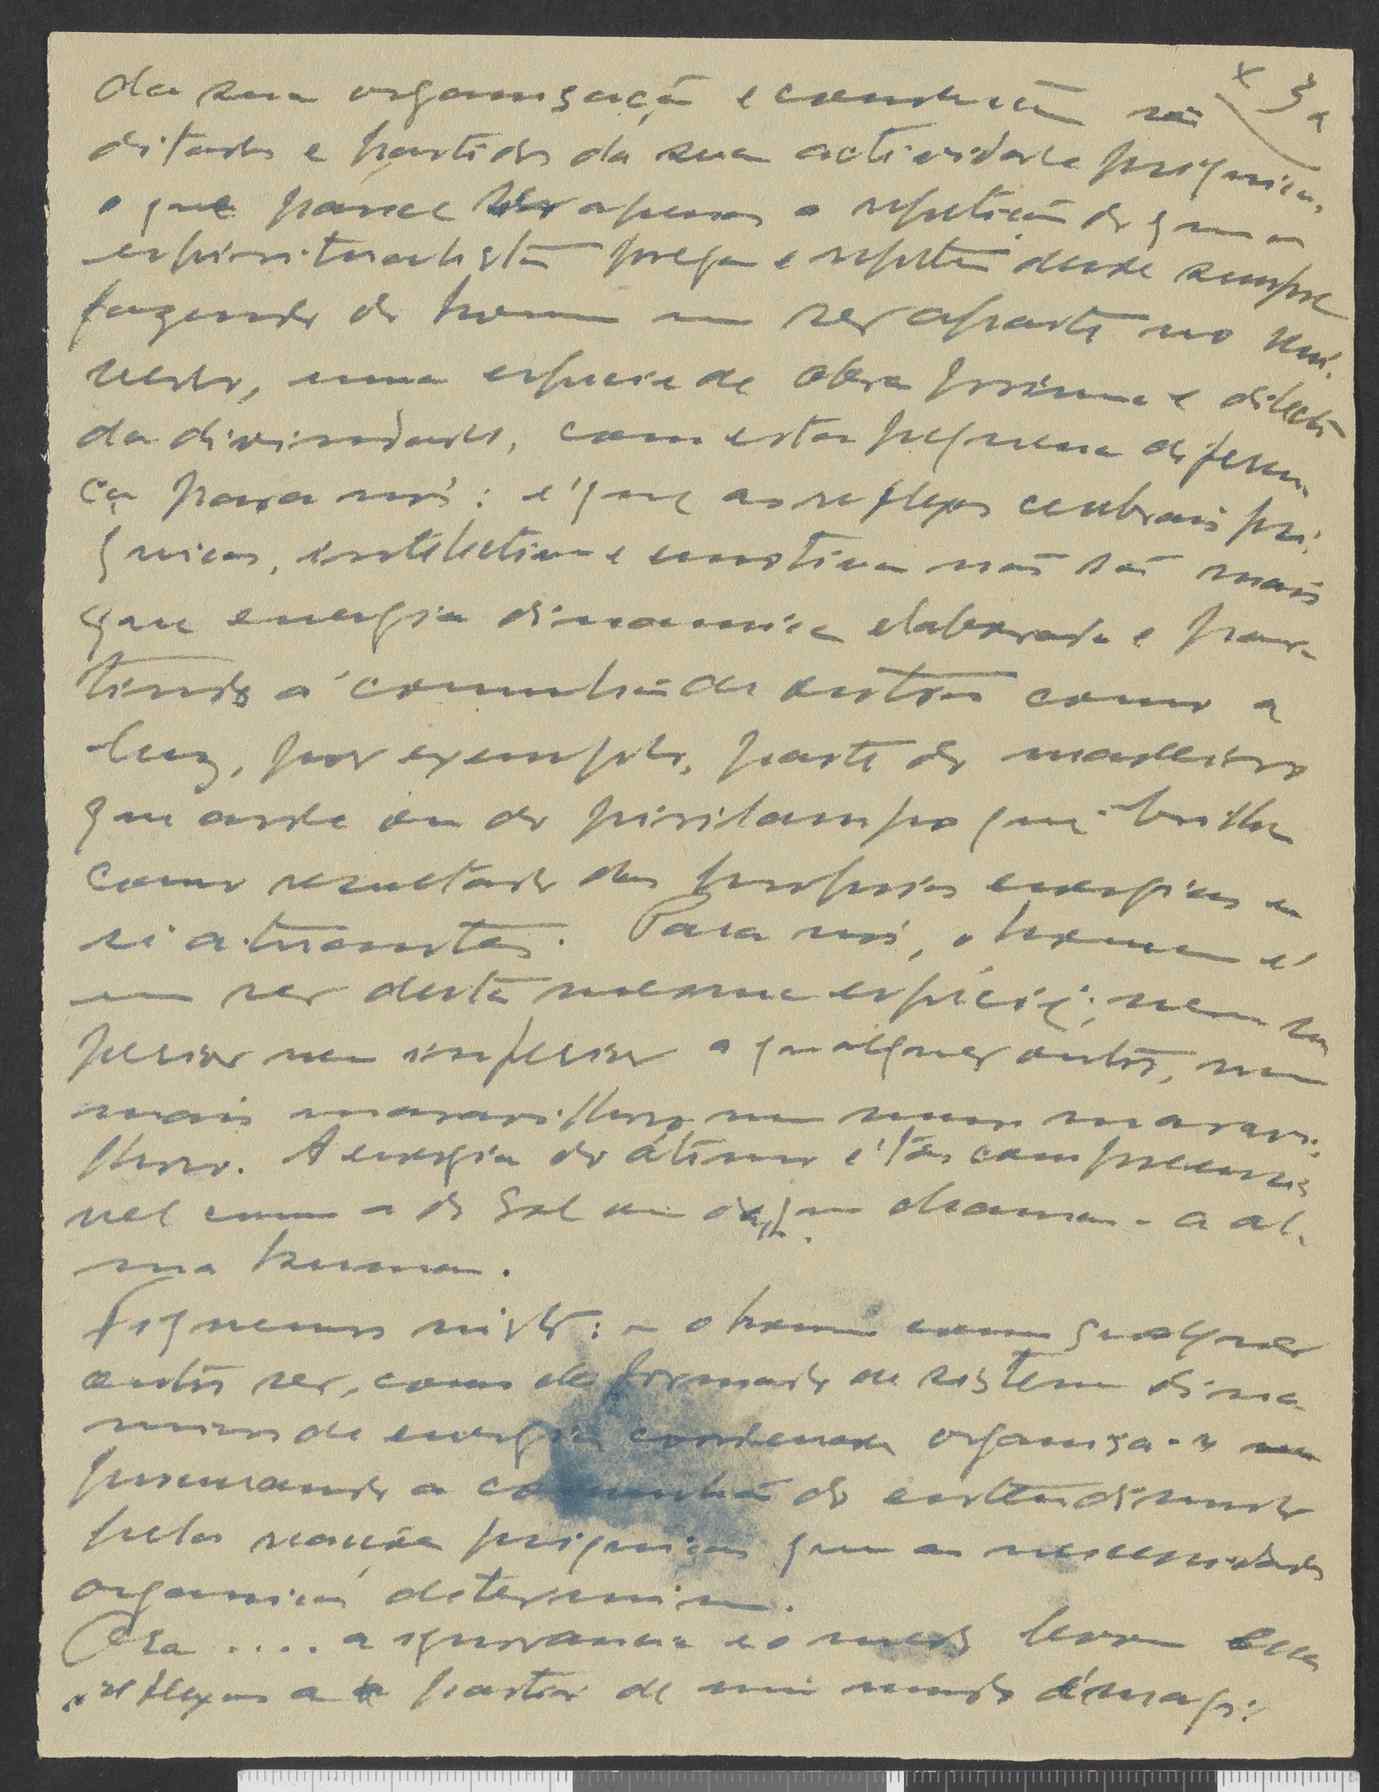 da sua organisação e construcção são x 3a
ditados e partidos da sua actividade psiquica,
o que parece ser apenas a repetição do que os
espiritualistas prega e repetem desde sempre
fazendo do homem um ser aparte no Uni-
verso, uma especie de obra prima e dilecta
da divindade, com esta pequena diferen-
ça para nós: é que os reflexos cerebrais psi-
quicos, intelectivos e emotivos não são mais
que energia dinamica elaborada e par-
tindo á comunhão de outros como a
luz, por exemplo, parte do madeiro
que arde ou do pirilampo que brilha
como rezultado das proprias energias em
si atuantes. Para nós, o homem é
um ser desta mesma espécie; nem su-
perior nem inferior a qualquer outro, nem
mais maravilhoso nem menos maravi-
lhoso. A energia do átimo é tão compreensi-
vel como a do Sol ou da que chamam a al-
ma humana.
Fiquemos nisto: – o homem como qualquer
outro ser, como de formado de sistema dina-
mico de energia condensada organisa-se
procurando a comunhão do entendimento
pelas reacções psiquicas que as necessidades
organicas determinam.
Ora .... a ignorancia e o medo levou esses
reflexos a partir de um mundo imagi-